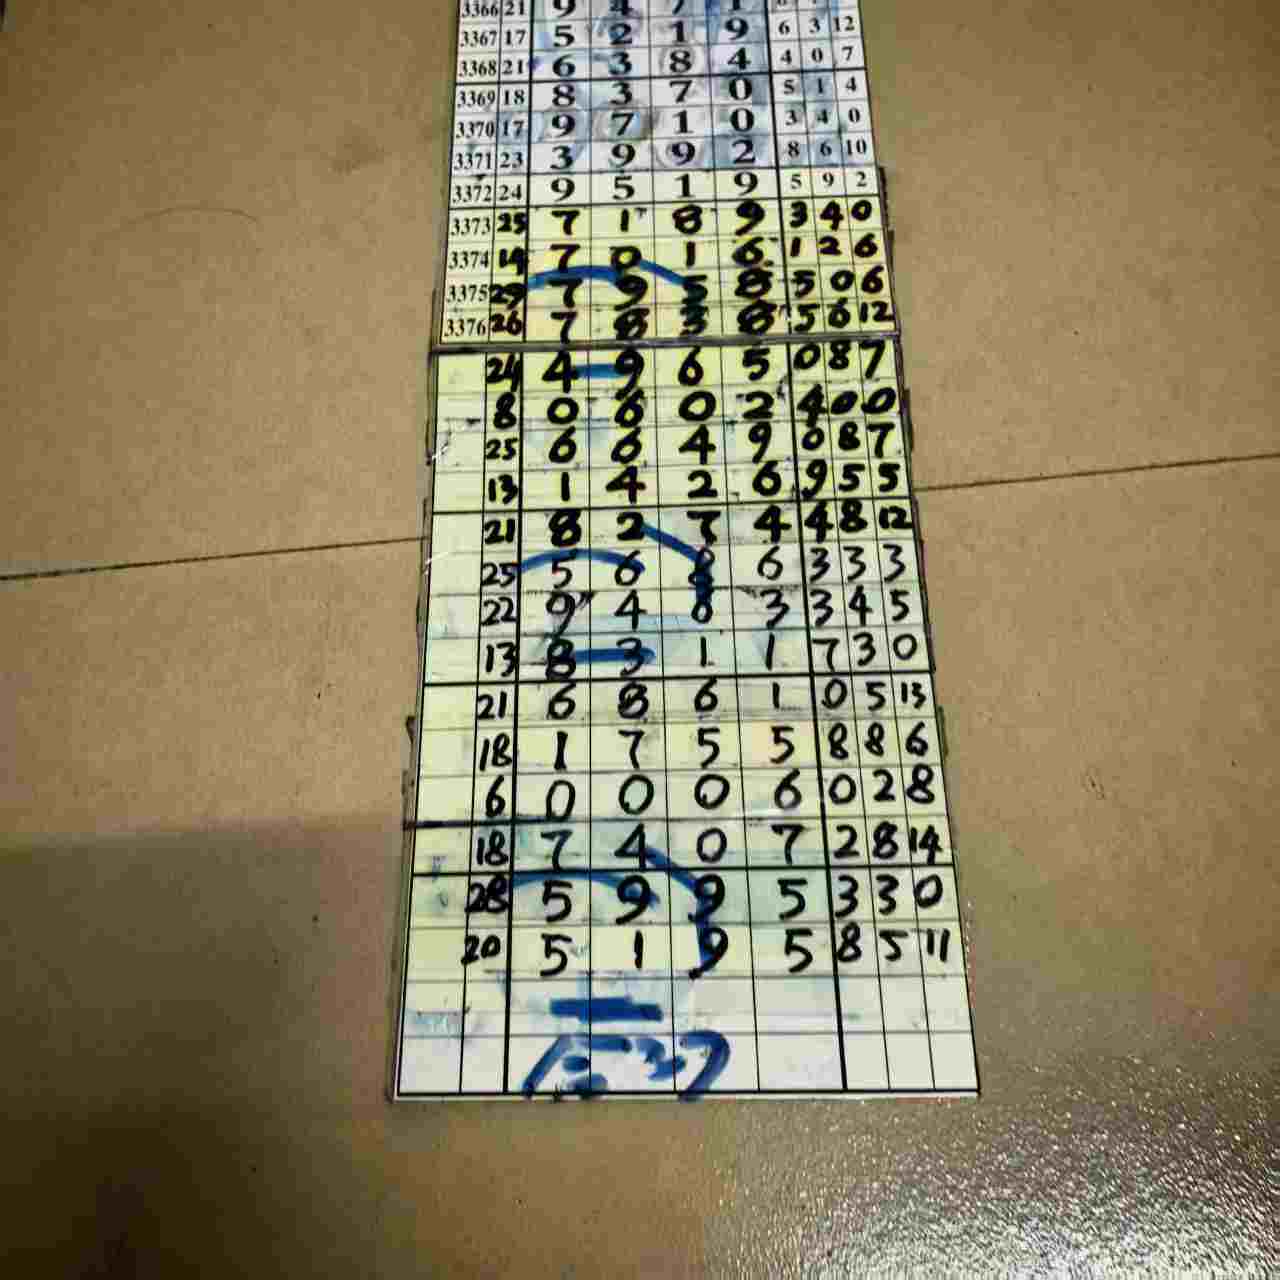 3366 21 9 4 7 1
3367 17 5 2 1 9 6 3 12
3368 21 6 3 8 4 4 0 7
3369 18 8 3 7 0 5 1 4
3370 17 9 7 1 0 3 4 0
3371 23 3 9 9 2 8 6 10
3372 24 9 5 1 9 5 9 2
3373 25 7 1 8 9 3 4 0
3374 14 7 0 1 6 1 2 6
3375 29 7 9 5 8 5 0 6
3376 26 7 8 3 8 5 6 12
24 4 9 6 5 0 8 7
8 0 6 0 2 4 0 0
25 6 6 4 9 0 8 7
13 1 4 2 6 9 5 5
21 8 2 7 4 4 8 12
25 5 6 8 6 3 3 3
22 9 4 6 3 3 4 5
13 8 3 1 1 7 3 0
21 6 8 6 1 0 5 13
18 1 7 5 5 8 8 6
6 0 0 0 6 0 2 8
18 7 4 0 7 2 8 14
28 5 9 9 5 3 3 0
20 5 1 9 5 8 5 11